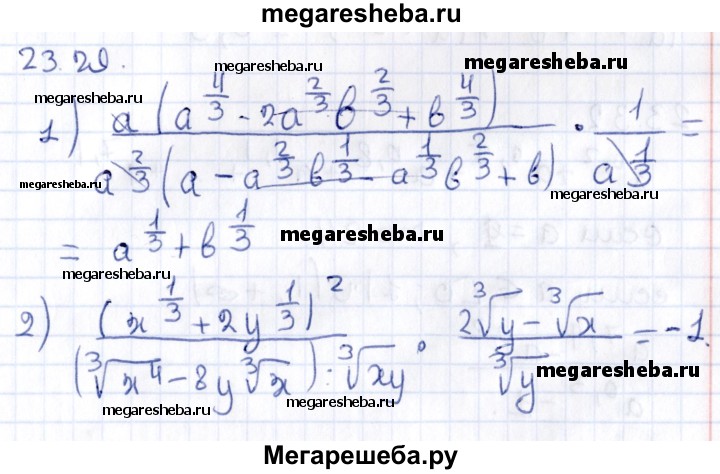 megaresheba.ru
23.29.
megaresheba.ru
megaresheba.ru
megaresheba.ru
1) a(a^{4/3} - 2a^{2/3}b^{2/3} + b^{4/3}) / (a^{2/3}(a - a^{2/3}b^{1/3} - a^{1/3}b^{2/3} + b)) · 1/a^{1/3} =
megaresheba.ru
megaresheba.ru
= a^{1/3} + b^{1/3}
megaresheba.ru
megaresheba.ru
2) (x^{1/3} + 2y^{1/3})^2 / ((∛x^4 - 8y∛x) : ∛xy) · (2∛y - ∛x) / ∛y = -1.
megaresheba.ru
megaresheba.ru
megaresheba.ru
Мегарешеба.ру